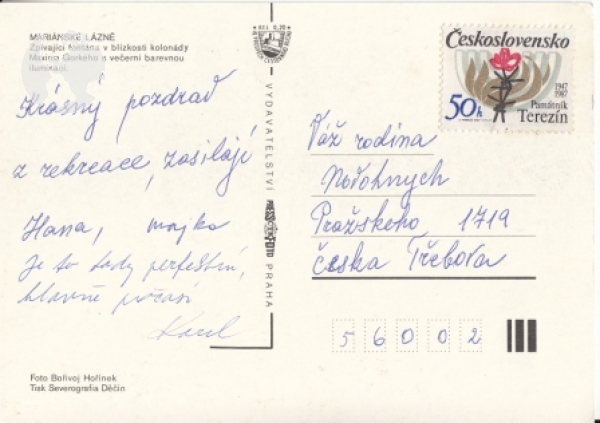 MARIÁNSKÉ LÁZNĚ
Zpívající fontána v blízkosti kolonády
Maxima Gorkého s večerní barevnou
iluminací.
Krásný pozdrav
z rekreace, zasílají
Hana, majka
Je to tady perfektní,
hlavně počasí
Karel
Foto Bořivoj Hořínek
Tisk Severografia Děčín
VYDAVATELSTVÍ
PRESSFOTO
PRAHA
Československo
1947
1987
Památník
Terezín
50h
Váž rodina
Pražského 1719
Česka Třebova
56002